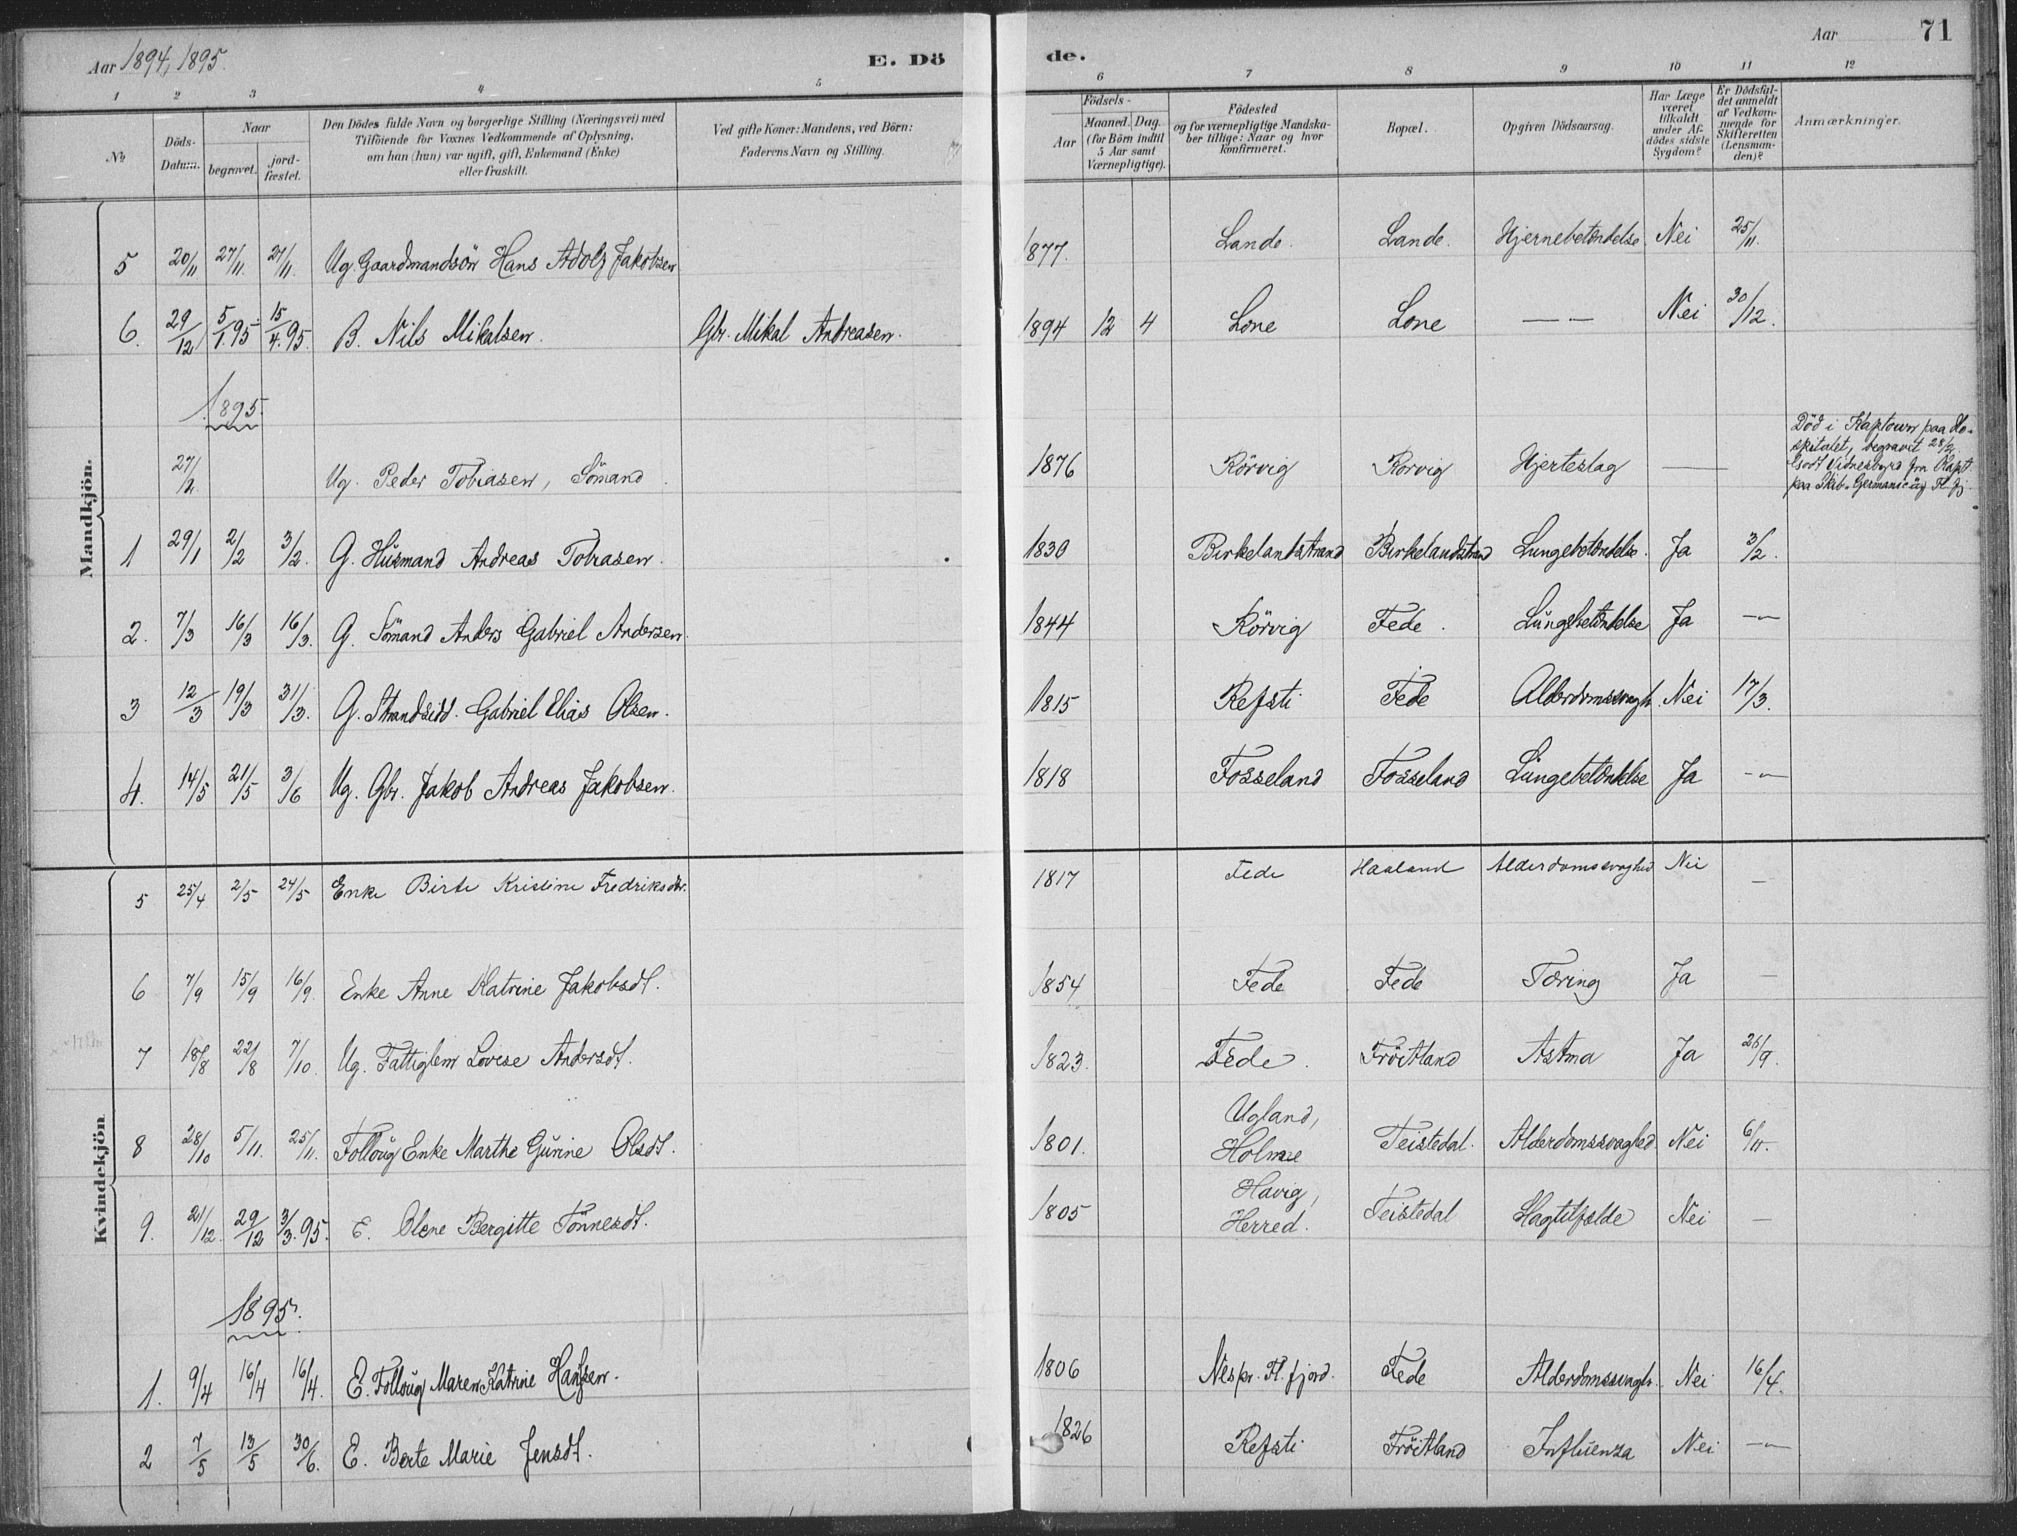 Aar 1894, 1895. E. Dö de. Aar 71
1 2 3 4 5 6 7 8 9 10 11 12
№ Döds-Datum. Naar begravet. jordfæstet. Den Dödes fulde Navn og borgerlige Stilling (Næringsvei) med Tilföiende for Voxnes Vedkommende af Oplysning, om han (hun) var ugift, gift, Enkemand (Enke) eller fraskilt. Ved gifte Koner: Mandens, ved Börn: Faderens Navn og Stilling. Födsels- Aar Maaned. Dag. (for Börn indtil 5 Aar samt Værnepligtige). Födested og for værnepligtige Mandskaber tillige: Naar og hvor konfirmeret. Bopæl. Opgiven Dödsaarsag. Har Læge været tilkaldt under Afdödes sidste Sygdom? Er Dödsfaldet anmeldt af Vedkommende for Skifteretten (Lensmanden)? Anmærkninger.
Mandkjön.
5 20/11 27/11. 27/11. Ug. Gaardmandsön Hans Adolf Jakobsen 1877. Lande. Lande. Hjernebetændelse. Nei 25/11.
6. 29/12 5/1.95. 15/4.95. B. Nils Mikalsen. Gbr. Mikal Andreasen. 1894 12 4 Lone Lone — — Nei 30/12.
1895.
Ug. Peder Tobiasen, Sömand. 1876 Rörvig Rorvig Hjerteslag — Död i Kaptown paa Ho-
spitalet, begravet 28/2
paa Skib. Germanic
1 29/1 2/2 3/2. G. Husmand Andreas Tobiasen. 1830 Birkelandstrand Birkelandstrand Lungebetændelse. Ja 3/2.
2. 7/3 16/3 16/3. G. Sömand Anders Gabriel Andersen. 1844 Rörvig Fede. Lungebetændelse Ja —
3 12/3 19/3 31/3. G. Strandsidd. Gabriel Elias Olsen. 1815 Refsti Fede Alderdomssvagh. Nei 17/3.
4. 14/5 21/5 3/6 Ug. Gbr. Jakob Andreas Jakobsen. 1818 Fosseland Fosseland Lungebetændelse Ja —
Kvindekjön
5 25/4 2/5 24/5 Enke Birte Kristine Fredriksdtr. 1817 Fede Haaland Alderdomssvaghed Nei —
6 7/9 15/9 16/9. Enke Anne Katrine Jakobsdt. 1854 Fede Fede Tæring Ja —
7 18/8 22/8 7/10. Ug. Fattiglem Lovise Andersdt. 1823. Fede. Fröitland Astma Ja 25/9.
8 28/10 5/11. 25/11. Follaug Enke Marthe Gurine Olsdt. 1801. Ugland, Holme Feistedal. Alderdomssvaghed. Nei 6/11.
9. 21/12. 29/12 3/3.95. E. Olene Bergitte Tönnesdt. 1805 Havig, Herred. Feistedal Slagtilfælde Nei —
1895.
1. 9/4 16/4 16/4. E. Follaug Maren Katrine Hansen. 1806 Nes pr. Fl.fjord. Fede Alderdomssvagh. Nei 16/4.
2 7/5 13/5 30/6. E. Berte Marie Jensdt. 1826 Refsti Fröitland Influenza Nei —